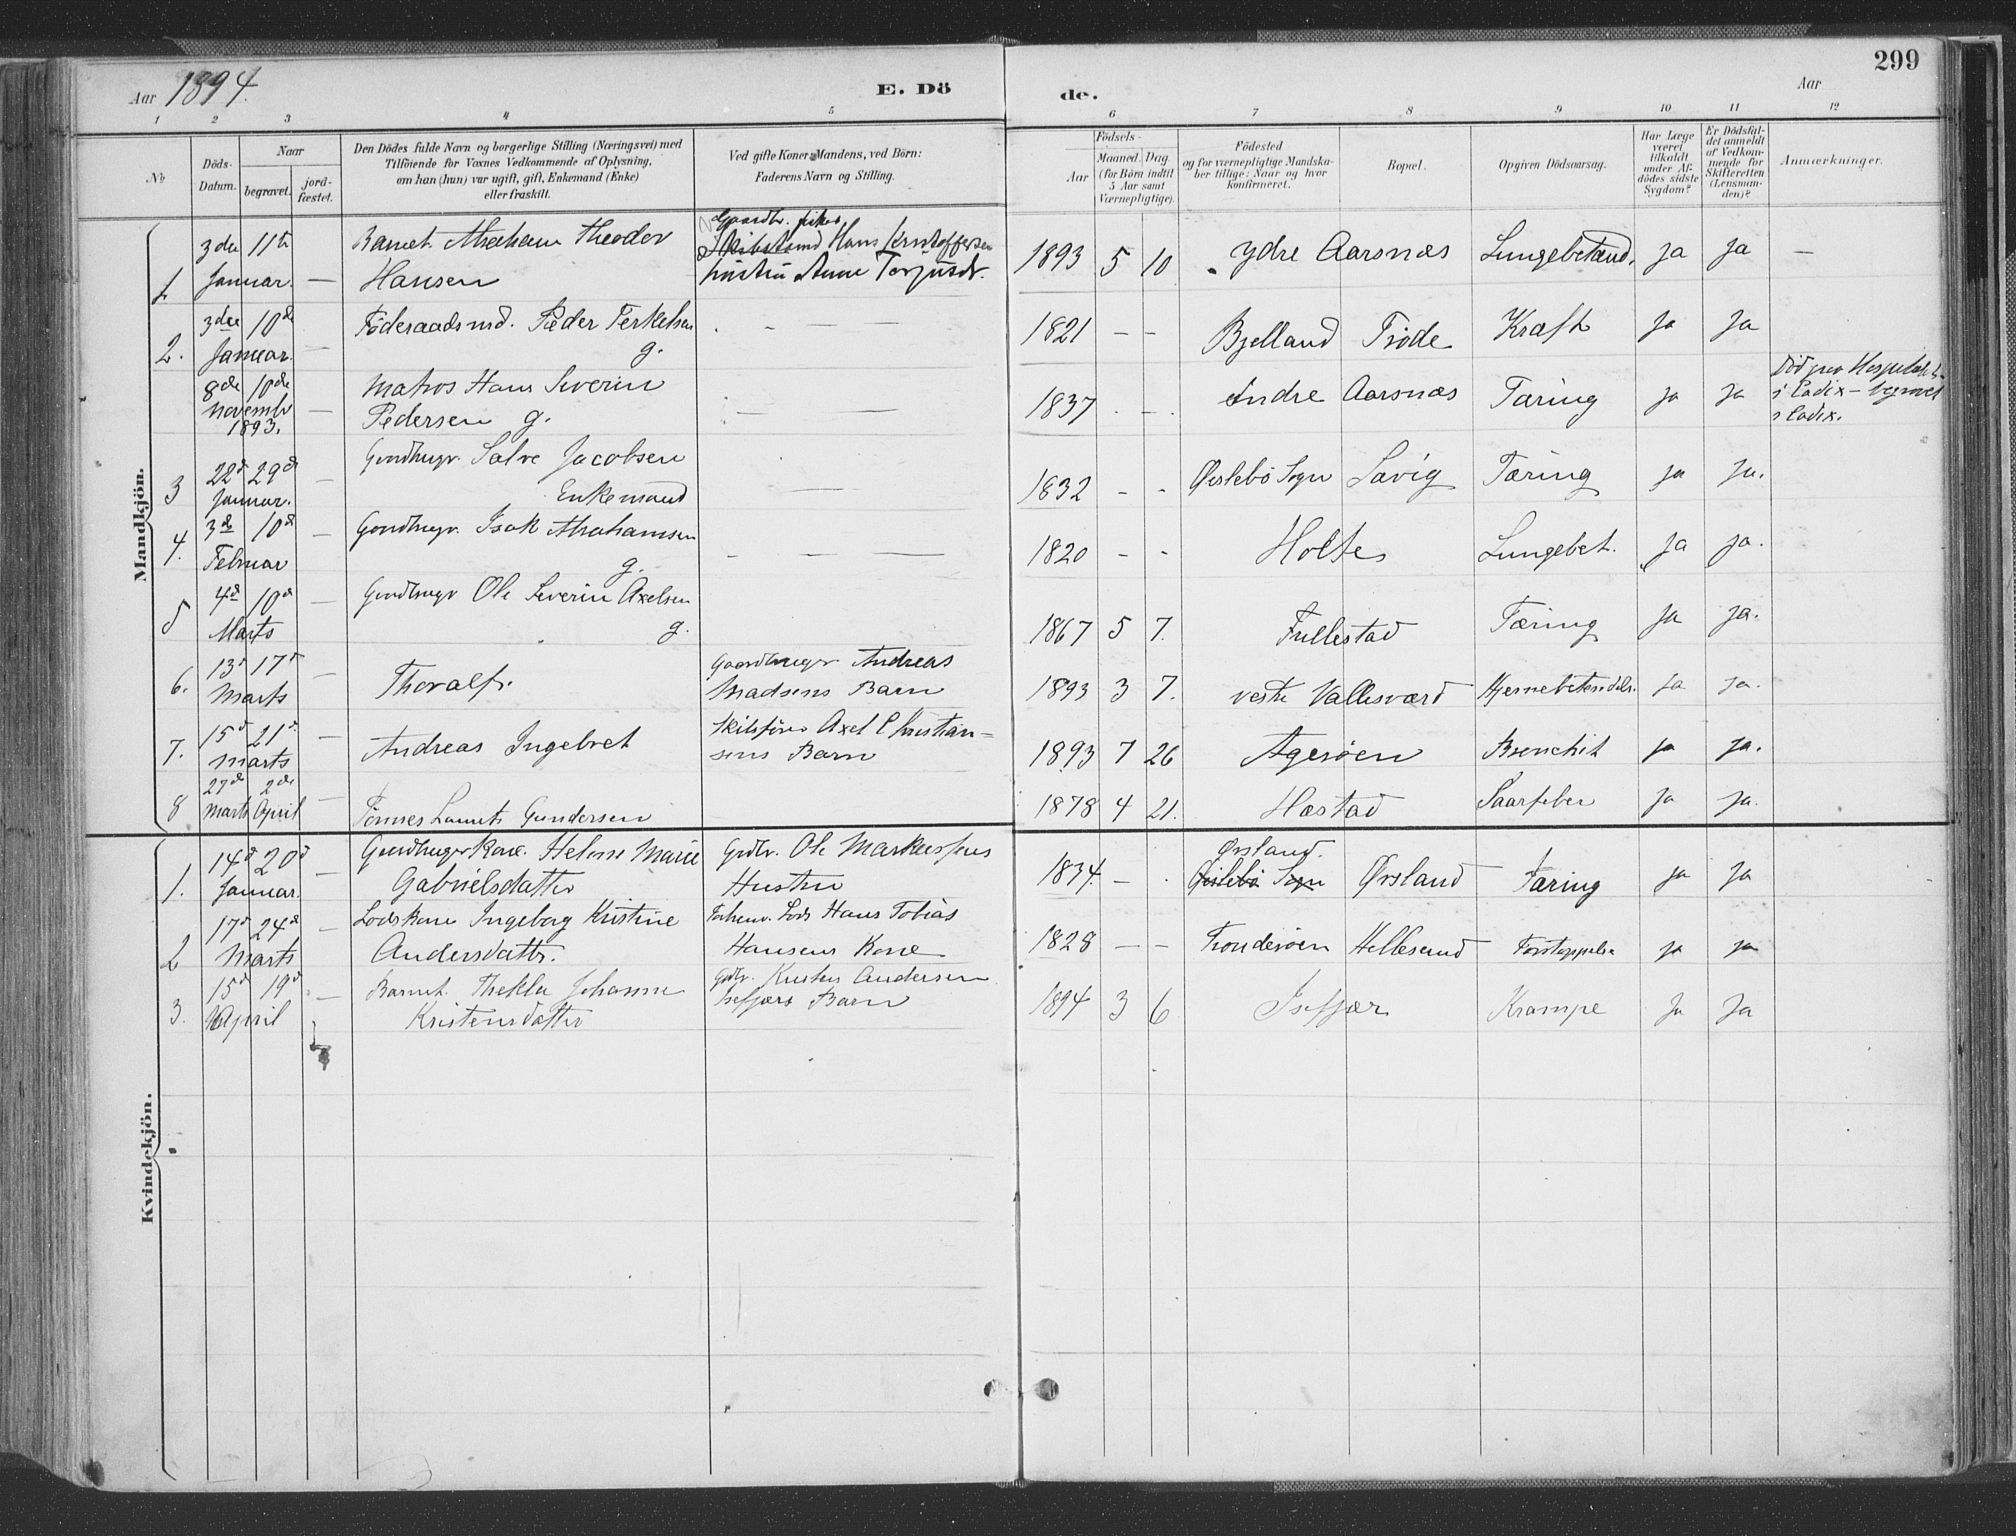 299
Aar 1894.
E. Dö
de.
Aar
1 2 3 4 5 6 7 8 9 10 11 12
No
Döds-Datum.
Naar
begravet.
jord-fæstet.
Den Dödes fulde Navn og borgerlige Stilling (Næringsvei) med
Tilföiende for Voxnes Vedkommende af Oplysning,
om han (hun) var ugift, gift, Enkemand (Enke)
eller fraskilt.
Ved gifte Koner: Mandens, ved Börn:
Faderens Navn og Stilling.
Födsels-
Aar
Maaned. Dag
(for Börn indtil
5 Aar samt
Værnepligtige).
Födested
og for værnepligtige Mandska-
ber tillige: Naar og hvor
konfirmeret.
Bopæl.
Opgiven Dödsaarsag.
Har Læge
været
tilkaldt
under Af-
dödes sidste
Sygdom?
Er Dödsfal-
det anmeldt
af Vedkom-
mende for
Skifteretten
(Lensman-
den)?
Anmærkninger.
Mandkjön.
1 3die Januar. 11te — Barnet Abraham Theodor Hansen Gaardbr. Hans Kristoffersen hustru Anne Terjusdr. 1893 5 10 Ydre Aarsnæs Lungebetænd. Ja Ja —
2. 3die Januar. 10de — Føderaadsmd. Peder Terkelsen g. 1821 — — Bjelland Trøde Kræft Ja Ja
8de Novembr 1893. 10de — Matros Hans Severin Pedersen g. — — 1837 — — Indre Aarsnæs Tæring Ja Ja Död paa Hospitalet i Cadix — begravet i Cadix.
3 22d Januar. 29de — Gaardbrugr. Salve Jacobsen Enkemand — 1832 — — Øislebø Sogn Lavig Tæring Ja Ja.
4. 3de Februar 10de — Gaardbrugr. Isak Abrahamsen g. — — 1820 — — Holte Lungebet. Ja Ja.
5 4de Marts 10de — Gaardbrugr Ole Severin Axelsen g. 1867 5 7. Fullestad Tæring Ja Ja.
6. 13d Marts 17d — Thoralf. Gaardbrugr Andreas Madsens Barn 1893 3 7. Vestre Vallesværd Hjernebetændels. Ja Ja.
7. 15d Marts 21d — Andreas Ingebret Skibsfører Axel Christian-sens Barn 1893 7 26 Ageröen Bronchit Ja Ja.
8 27d Marts 2den April — Tønnes Laurits Gundersen 1878 4 21. Hæstad Saarfeber Ja Ja.
Kvindekjön.
1. 14d Januar. 20d — Gaardbrugerkone. Helene Marie Gabrielsdatter Grdbr. Ole Markussens Hustru 1834. — Ørsland. Øislebø Sogn Ørsland Tæring Ja Ja
2 17d Marts 24d — Lodskone Ingeborg Kristine Andersdattr. Forhenv. Lods Hans Tobias Hansens Kone 1828 — — Trondesøen Hellesund Forstoppelse Ja Ja
3. 15d April 19d — Barnet. Thekla Johanne Kristensdatter Grdbr. Kristen Andersen Isefjærs Barn 1894 3 6 Isefjær Krampe Ja Ja